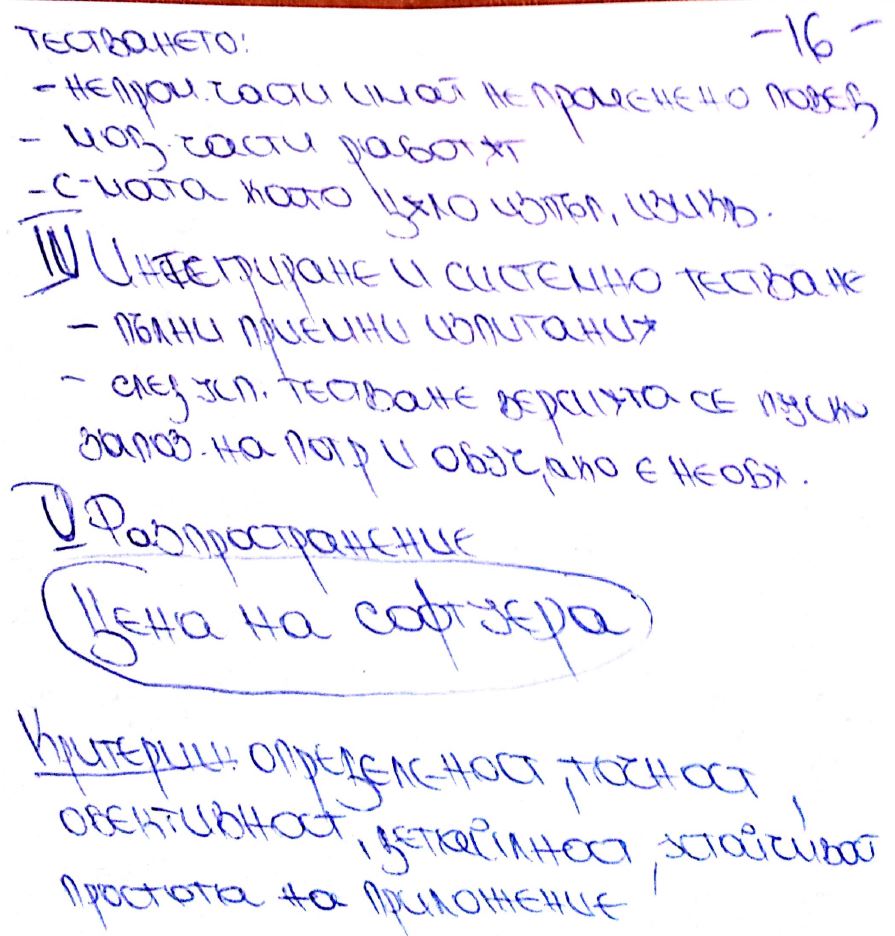 тестването: -16-
- непром. части имат непроменено повед
- мод. части работят
- с-мата като цяло изпъл. изискв.
IV Интегриране и системно тестване
- пълни приемни изпитания
- след усп. тестване версията се пуска
запоз. на потр и обуч, ако е необх.
V Разпространение
Цена на софтуера
Критерии: определеност, точност,
обективност, детайлност, устойчивост
простота на приложение